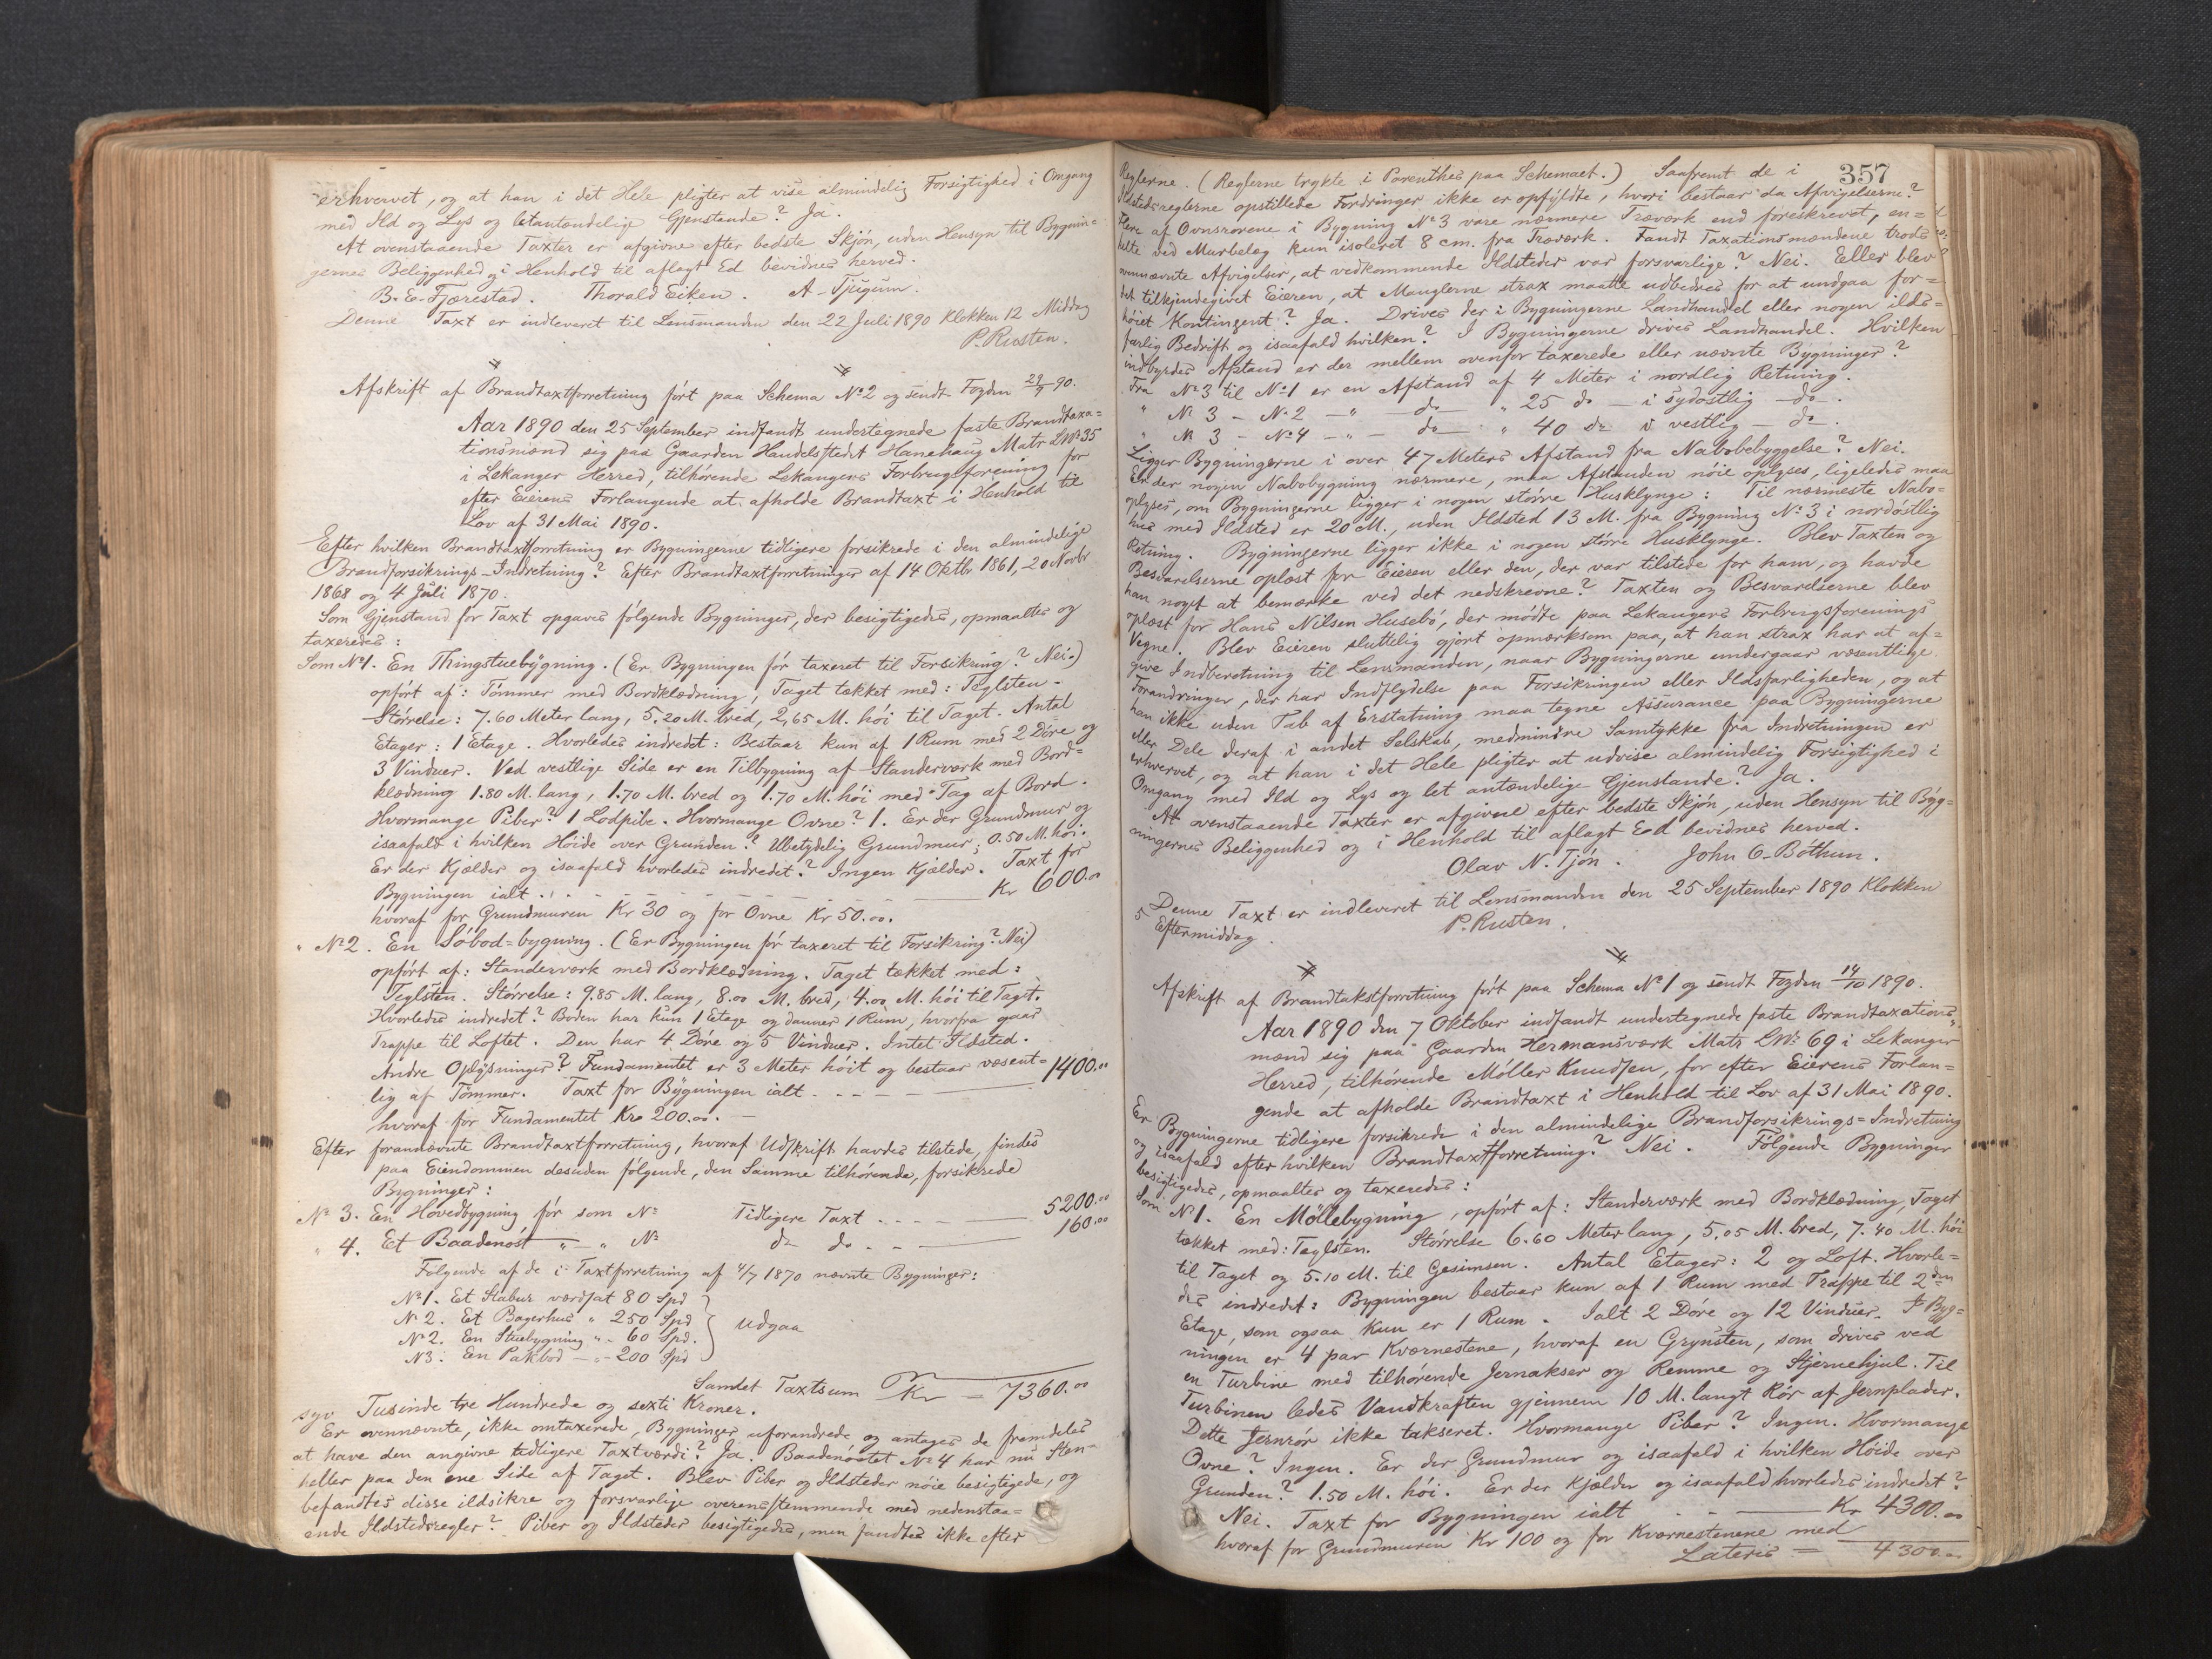 erhvervet, og at han i det Hele pligter at vise almindelig Forsigtighed i Omgang
med Ild og Lys og letantændelige Gjenstande? Ja.
At ovenstaaende Taxter er afgivne efter bedste Skjøn, uden Hensyn til Bygnin=
gernes Beliggenhed og i Henhold til aflagt Ed bevidnes herved.
B. E. Fjærestad. Thorald Eiken. A. Tjugum.
Denne Taxt er indleveret til Lensmanden den 22 Juli 1890 Klokken 12 Middag
P. Rusten.
Afskrift af Brandtaxtforretning ført paa Schema No 2 og sendt Fogden 29/9 90.
Aar 1890 den 25 September indfandt undertegnede faste Brandtaxa=
tionsmænd sig paa Gaarden Handelsstedet Hanehaug Matr LNo 35
i Lekanger Herred, tilhørende Lekangers Forbrugsforening for
efter Eierens Forlangende at afholde Brandtaxt i Henhold til
Lov af 31 Mai 1890.
Efter hvilken Brandtaxtforretning er Bygningerne tidligere forsikrede i den almindelige
Brandforsikrings-Indretning? Efter Brandtaxtforretninger af 14 Oktbr 1861, 20 Novbr
1868 og 4 Juli 1870.
Som Gjenstand for Taxt opgaves følgende Bygninger, der besigtigedes, opmaaltes og
taxeredes:
Som No 1. En Thingstuebygning. (Er Bygningen før taxeret til Forsikring? Nei.)
opført af: Tømmer med Bordklædning, Taget tækket med: Teglsten.
Størrelse: 7.60 Meter lang, 5.20 M. bred, 2,65 M. høi til Taget. Antal
Etager: 1 Etage. Hvorledes indredet: Bestaar kun af 1 Rum med 2 Døre og
3 Vinduer. Ved vestlige Side er en Tilbygning af Standerværk med Bord=
klædning 1.80 M. lang, 1.70 M. bred og 1.70 M. høi med Tag af Bord.
Hvormange Piber? 1 Lodpibe. Hvormange Ovne? 1. Er der Grundmur og
isaafald i hvilken Høide over Grunden? Ubetydelig Grundmur; 0.50 M. høi.
Er der Kjælder og isaafald hvorledes indredet? Ingen Kjælder. Taxt for
Bygningen ialt . . - - - - - Kr 600.00
hvoraf for Grundmuren Kr 30 og for Ovne Kr 50.00.
" No 2. En Søbod=bygning. (Er Bygningen før taxeret til Forsikring? Nei)
opført af: Standerværk med Bordklædning. Taget tækket med:
Teglsten. Størrelse: 9.85 M. lang, 8.00 M. bred, 4.00 M. høi til Taget.
Hvorledes indredet? Boden har kun 1 Etage og danner 1 Rum, hvorfra gaar
Trappe til Loftet. Den har 4 Døre og 5 Vinduer. Intet Ildsted.
Andre Oplysninger? Fundamentet er 3 Meter høit og bestaar væsent=
lig af Tømmer. Taxt for Bygningen ialt - - - - 1400.00
hvoraf for Fundamentet Kr 200.00. —
Efter forannævnte Brandtaxtforretning, hvoraf Udskrift havdes tilstede, findes
paa Eiendommen desuden følgende, den Samme tilhørende, forsikrede
Bygninger:
No 3. En Hovedbygning før som No Tidligere Taxt - - - - 5200.00
" 4. Et Baadenøst " — " No do do - - 160.00
Følgende af de i Taxtforretning af 4/7 1870 nævnte Bygninger:
No 1. Et Stabur værdsat 80 Spd
No 2. Et Bagerhus " 250 Spd
No 2. En Stuebygning " - 60 Spd.
No 3. En Pakbod — " - 200 Spd
Udgaa
Samlet Taxtsum Kr = 7360.00
syv Tusinde tre Hundrede og sexti Kroner.
Er ovennævnte, ikke omtaxerede, Bygninger uforandrede og antages de fremdeles
at have den angivne tidligere Taxtværdi? Ja. Baadenøstet No 4 har nu Sten=
heller paa den ene Side af Taget. Blev Piber og Ildsteder nøie besigtigede, og
befandtes disse ildsikre og forsvarlige overensstemmende med nedenstaa=
ende Ildstedsregler? Piber og Ildsteder besigtigedes, men fandtes ikke efter
357
Reglerne. (Reglerne trykte i Parenthes paa Schemaet.) Saafremt de i
Ildstedsreglerne opstillede Fordringer ikke er opfyldte, hvori bestaar da Afvigelserne?
Flere af Ovnsrørene i Bygning No 3 vare nærmere Træværk end foreskrevet, en=
kelte ved Murbelæg kun isoleret 8 cm. fra Træværk. Fandt Taxationsmændene trods
ovennævnte Afvigelser, at vedkommende Ildsteder var forsvarlige? Nei. Eller blev
det tilkjendegivet Eieren, at Manglerne strax maatte udbedres for at undgaa for=
høiet Kontingent? Ja. Drives der i Bygningerne Landhandel eller nogen ilds=
farlig Bedrift og isaafald hvilken? I Bygningerne drives Landhandel. Hvilken
indbyrdes Afstand er der mellem ovenfor taxerede eller nævnte Bygninger?
Fra No 3 til No 1 er en Afstand af 4 Meter i nordlig Retning.
" No 3 - No 2 — " — do — " 25 do — i sydøstlig — do.
" No 3 - No 4 — " — do — " 40 do i vestlig — do.
Ligger Bygningerne i over 47 Meters Afstand fra Nabobebyggelse? Nei.
Er der nogen Nabobygning nærmere, maa Afstanden nøie oplyses, ligeledes maa
oplyses, om Bygningerne ligger i nogen større Husklynge: Til nærmeste Nabo=
hus med Ildsted er 20 M., uden Ildsted 13 M. fra Bygning No 3 i nordøstlig
Retning. Bygningerne ligger ikke i nogen større Husklynge. Blev Taxten og
Besvarelserne oplæst for Eieren eller den, der var tilstede for ham, og havde
han noget at bemærke ved det nedskrevne? Taxten og Besvarelserne blev
oplæst for Hans Nilsen Husebø, der mødte paa Lekangers Forbrugsforenings
Vegne. Blev Eieren sluttelig gjort opmærksom paa, at han strax har at af=
give Indberetning til Lensmanden, naar Bygningerne undergaar væsentlige
Forandringer, der har Indflydelse paa Forsikringen eller Ildsfarligheden, og at
han ikke uden Tab af Erstatning maa tegne Assurance paa Bygningerne
eller Dele deraf i andet Selskab, medmindre Samtykke fra Indretningen er
erhvervet, og at han i det Hele pligter at udvise almindelig Forsigtighed i
Omgang med Ild og Lys og let antændelige Gjenstande? Ja.
At ovenstaaende Taxter er afgivne efter bedste Skjøn, uden Hensyn til Byg=
ningernes Beliggenhed og i Henhold til aflagt Ed bevidnes herved.
Olav N. Tjøn. John O. Bøthun.
Denne Taxt er indleveret til Lensmanden den 25 September 1890 Klokken
5 Eftermiddag. P. Rusten.
Afskrift af Brandtakstforretning ført paa Schema No 1 og sendt Fogden 14/10 1890.
Aar 1890 den 7 Oktober indfandt undertegnede faste Brandtaxations=
mænd sig paa Gaarden Hermansværk Matr LNo 69 i Lekanger
Herred, tilhørende Møller Knudsen, for efter Eierens Forlan=
gende at afholde Brandtaxt i Henhold til Lov af 31 Mai 1890.
Er Bygningerne tidligere forsikrede i den almindelige Brandforsikrings=Indretning
og isaafald efter hvilken Brandtaxtforretning? Nei. Følgende Bygninger
besigtigedes, opmaaltes og taxeredes:
Som No 1. En Møllebygning, opført af: Standerværk med Bordklædning, Taget
tækket med: Teglsten. Størrelse 6.60 Meter lang, 5.05 M. bred, 7.40 M. høi
til Taget og 5.10 M. til Gesimsen. Antal Etager: 2 og Loft. Hvorle=
des indredet: Bygningen bestaar kun af 1 Rum med Trappe til 2den
Etage, som ogsaa kun er 1 Rum. Ialt 2 Døre og 12 Vinduer. I Byg=
ningen er 4 par Kværnestene, hvoraf en Grynsten, som drives ved
en Turbine med tilhørende Jernakser og Remme og Stjernehjul. Til
Turbinen ledes Vandkraften gjennem 10 M. langt Rør af Jernplader.
Dette Jernrør ikke takseret. Hvormange Piber? Ingen. Hvormange
Ovne? Ingen. Er der Grundmur og isaafald i hvilken Høide over
Grunden? 1.50 M. høi. Er der Kjælder og isaafald hvorledes indredet?
Nei. Taxt for Bygningen ialt - - Kr 4300.00
hvoraf for Grundmuren Kr 100 og for Kværnestenene med
Lateris = 4300.00